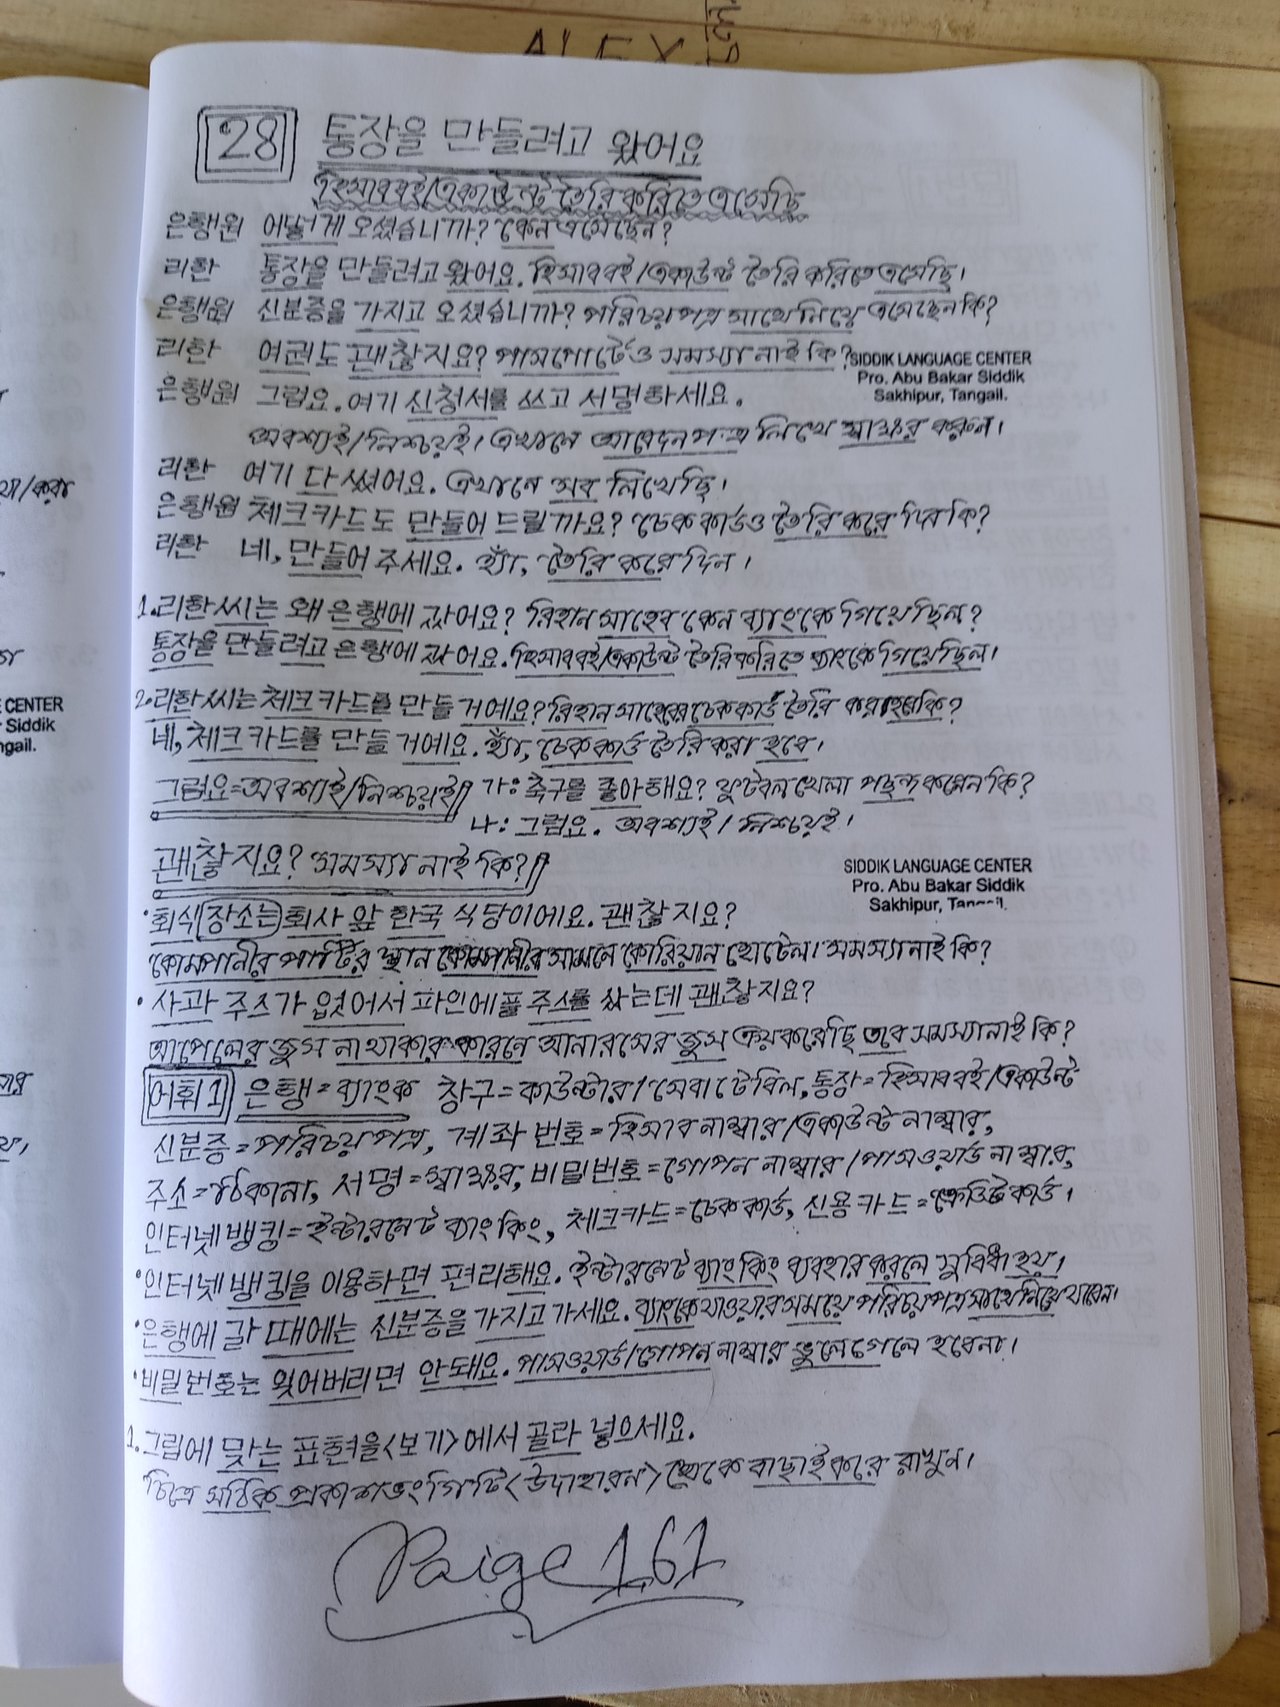 ALEX
28 통장을 만들려고 왔어요
হিসাববই/একাউন্ট তৈরি করিতে এসেছি
은행원 어떻게 오셨습니까? কেন এসেছেন?
리한 통장을 만들려고 왔어요. হিসাববই/একাউন্ট তৈরি করিতে এসেছি।
은행원 신분증을 가지고 오셨습니까? পরিচয়পত্র সাথে নিয়ে এসেছেন কি?
리한 여권도 괜찮지요? পাসপোর্টেও সমস্যা নাই কি?
SIDDIK LANGUAGE CENTER
Pro. Abu Bakar Siddik
Sakhipur, Tangail.
은행원 그럼요. 여기 신청서를 쓰고 서명하세요.
অবশ্যই/নিশ্চয়ই। এখানে আবেদনপত্র লিখে স্বাক্ষর করুন।
리한 여기 다 썼어요. এখানে সব লিখেছি।
은행원 체크카드도 만들어 드릴까요? চেক কার্ডও তৈরি করে দিব কি?
리한 네, 만들어 주세요. হ্যাঁ, তৈরি করে দিন।
1. 리한 씨는 왜 은행에 갔어요? রিহান সাহেব কেন ব্যাংকে গিয়েছিল?
통장을 만들려고 은행에 갔어요. হিসাববই/একাউন্ট তৈরি করিতে ব্যাংকে গিয়েছিল।
2. 리한 씨는 체크카드를 만들 거예요? রিহান সাহেবের চেক কার্ড তৈরি করা হবে কি?
네, 체크카드를 만들 거예요. হ্যাঁ, চেক কার্ড তৈরি করা হবে।
그럼요=অবশ্যই/নিশ্চয়ই 가: 축구를 좋아해요? ফুটবল খেলা পছন্দ করেন কি?
나: 그럼요. অবশ্যই/নিশ্চয়ই।
괜찮지요? সমস্যা নাই কি?
SIDDIK LANGUAGE CENTER
Pro. Abu Bakar Siddik
Sakhipur,
• 회식 장소는 회사 앞 한국 식당이에요. 괜찮지요?
কোম্পানীর পার্টির স্থান কোম্পানীর সামনে কোরিয়ান হোটেল। সমস্যা নাই কি?
• 사과 주스가 없어서 파인애플 주스를 샀는데 괜찮지요?
আপেলের জুস না থাকার কারনে আনারসের জুস ক্রয় করেছি তবে সমস্যা নাই কি?
어휘 1 은행=ব্যাংক 창구=কাউন্টার/সেবা টেবিল, 통장=হিসাববই/একাউন্ট
신분증=পরিচয়পত্র, 계좌 번호=হিসাব নাম্বার/একাউন্ট নাম্বার,
주소=ঠিকানা, 서명=স্বাক্ষর, 비밀번호=গোপন নাম্বার/পাসওয়ার্ড নাম্বার,
인터넷뱅킹=ইন্টারনেট ব্যাংকিং, 체크카드=চেক কার্ড, 신용카드=ক্রেডিট কার্ড।
• 인터넷 뱅킹을 이용하면 편리해요. ইন্টারনেট ব্যাংকিং ব্যবহার করলে সুবিধা হয়।
• 은행에 갈 때에는 신분증을 가지고 가세요. ব্যাংকে যাওয়ার সময়ে পরিচয়পত্র সাথে নিয়ে যাবেন।
• 비밀번호는 잊어버리면 안돼요. পাসওয়ার্ড/গোপন নাম্বার ভুলে গেলে হবেনা।
1. 그림에 맞는 표현을 <보기>에서 골라 넣으세요.
চিত্রে সঠিক প্রকাশভংগিটি <উদাহারন> থেকে বাছাই করে রাখুন।
Paige 161
CENTER
Siddik
ngail.